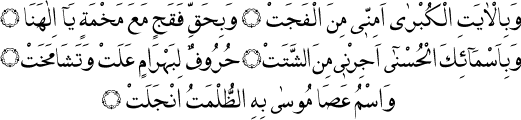 وَبِالْاٰيَتِ الْكُبْرٰى اَمِنّٖى مِنَ الْفَجَتْ ۞ وَبِحَقِّ فَقَجٍ مَعَ مَخْمَةٍ يَٓا اِلٰهَنَا ۞
وَبِاَسْمَٓائِكَ الْحُسْنٰٓى اَجِرْنٖى مِنَ الشَّتَتْ ۞ حُرُوفٌ لِبَهْرَامٍ عَلَتْ وَتَشَامَخَتْ ۞
وَاسْمُ عَصَا مُوسٰى بِهِ الظُّلْمَتُ انْجَلَتْ ۞